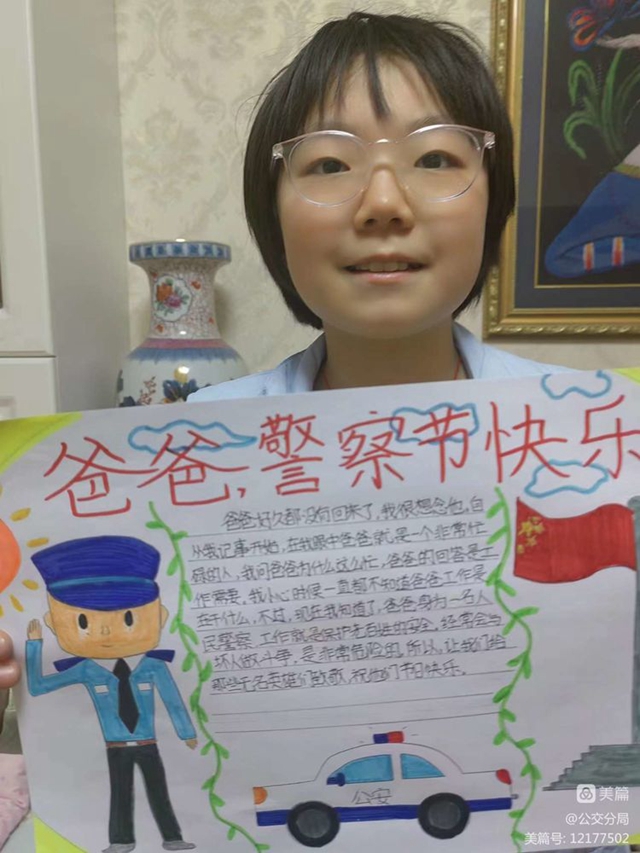 爸爸,警察节快乐
爸爸好久都没有回来了,我很想念他,自
从我记事开始,在我眼中爸爸就是一个非常忙
碌的人,我问爸爸为什么这么忙,爸爸的回答是工
作需要。我小心时候一直都不知道爸爸工作是
在干什么,不过,现在我知道了,爸爸身为一名人
民警察 工作就是保护老百姓的安全,经常会与
坏人做斗争,是非常危险的,所以,让我们给
那些无名英雄们致敬,祝他们节日快乐。
公安
美篇
@公交分局
美篇号: 12177502